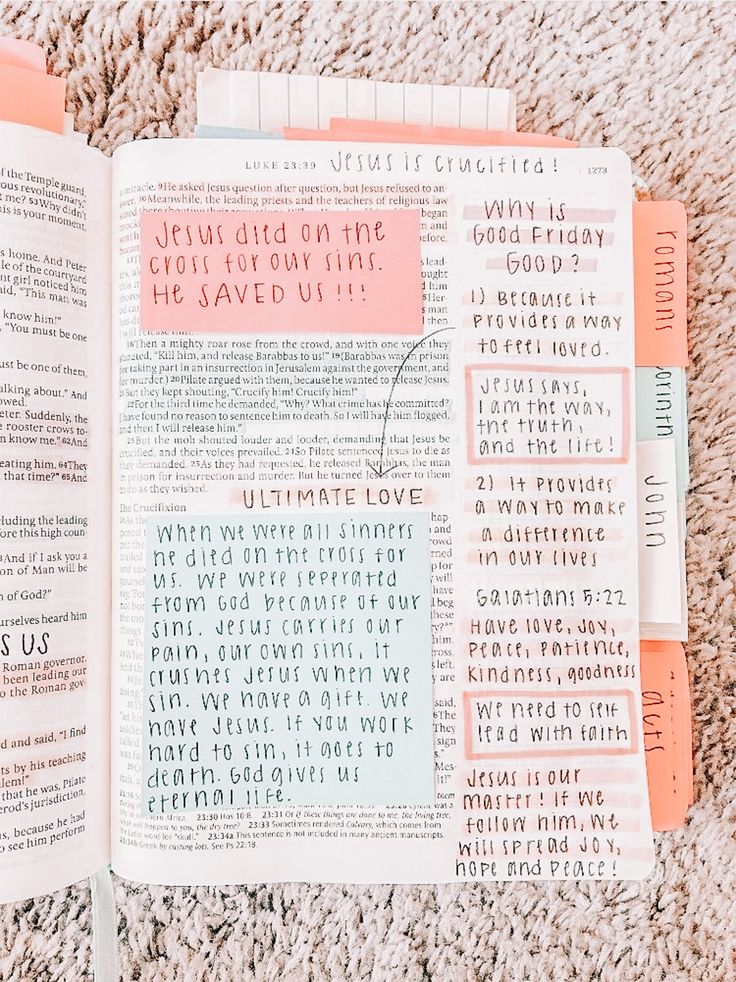 of the Temple guard,
ous revolutionary,"
t me? 53Why didn't
his is your moment,
s home. And Peter
le of the courtyard
nt girl noticed him
said, "This man was
know him!"
, "You must be one
ust be one of them,
lking about." And
owed.
eter. Suddenly, the
e rooster crows to-
n know me." 62And
eating him. 64They
that time?" 65And
cluding the leading
ore this high coun-
And if I ask you a
on of Man will be
n of God?"
urselves heard him
S US
Roman governor.
been leading our
o the Roman gov-
d and said, "I find
ts by his teaching
alem!"
that he was, Pilate
erod's jurisdiction,
us, because he had
o see him perform
LUKE 23:39 Jesus is crucified! 1273
a miracle. 9He asked Jesus question after question, but Jesus refused to an-
swer. 10Meanwhile, the leading priests and the teachers of religious law
Jesus died on the
cross for our sins.
HE SAVED US!!!
18Then a mighty roar rose from the crowd, and with one voice they
shouted, "Kill him, and release Barabbas to us!" 19(Barabbas was in prison
for taking part in an insurrection in Jerusalem against the government, and
for murder.) 20Pilate argued with them, because he wanted to release Jesus.
21But they kept shouting, "Crucify him! Crucify him!"
22For the third time he demanded, "Why? What crime has he committed?
I have found no reason to sentence him to death. So I will have him flogged,
and then I will release him."
23But the mob shouted louder and louder, demanding that Jesus be
crucified, and their voices prevailed. 24So Pilate sentenced Jesus to die as
they demanded. 25As they had requested, he released Barabbas, the man
in prison for insurrection and murder. But he turned Jesus over to them
to do as they wished.
ULTIMATE LOVE
The Crucifixion
When we were all sinners
he died on the cross for
us. We were seperated
from God because of our
sins. Jesus carries our
pain, our own sins, it
crushes Jesus when we
sin. We have a gift. We
have Jesus. If you work
hard to sin, it goes to
death. God gives us
eternal life.
23:30 Hos 10:8. 23:31 Or If these things are done to me, the living tree,
what will happen to you, the dry tree? 23:33 Sometimes rendered Calvary, which comes from
the Latin word for "skull." 23:34a This sentence is not included in many ancient manuscripts.
23:34b Greek by casting lots. See Ps 22:18.
WHY IS
GOOD FRIDAY
GOOD?
1) Because it
provides a way
to feel loved.
Jesus says,
I am the way,
the truth,
and the life!
2) It provides
a way to make
a difference
in our lives
Galatians 5:22
Have love, joy,
peace, patience,
kindness, goodness
We need to self
lead with faith
Jesus is our
master! If we
follow him, we
will spread joy,
hope and peace!
romans
orinth
John
acts